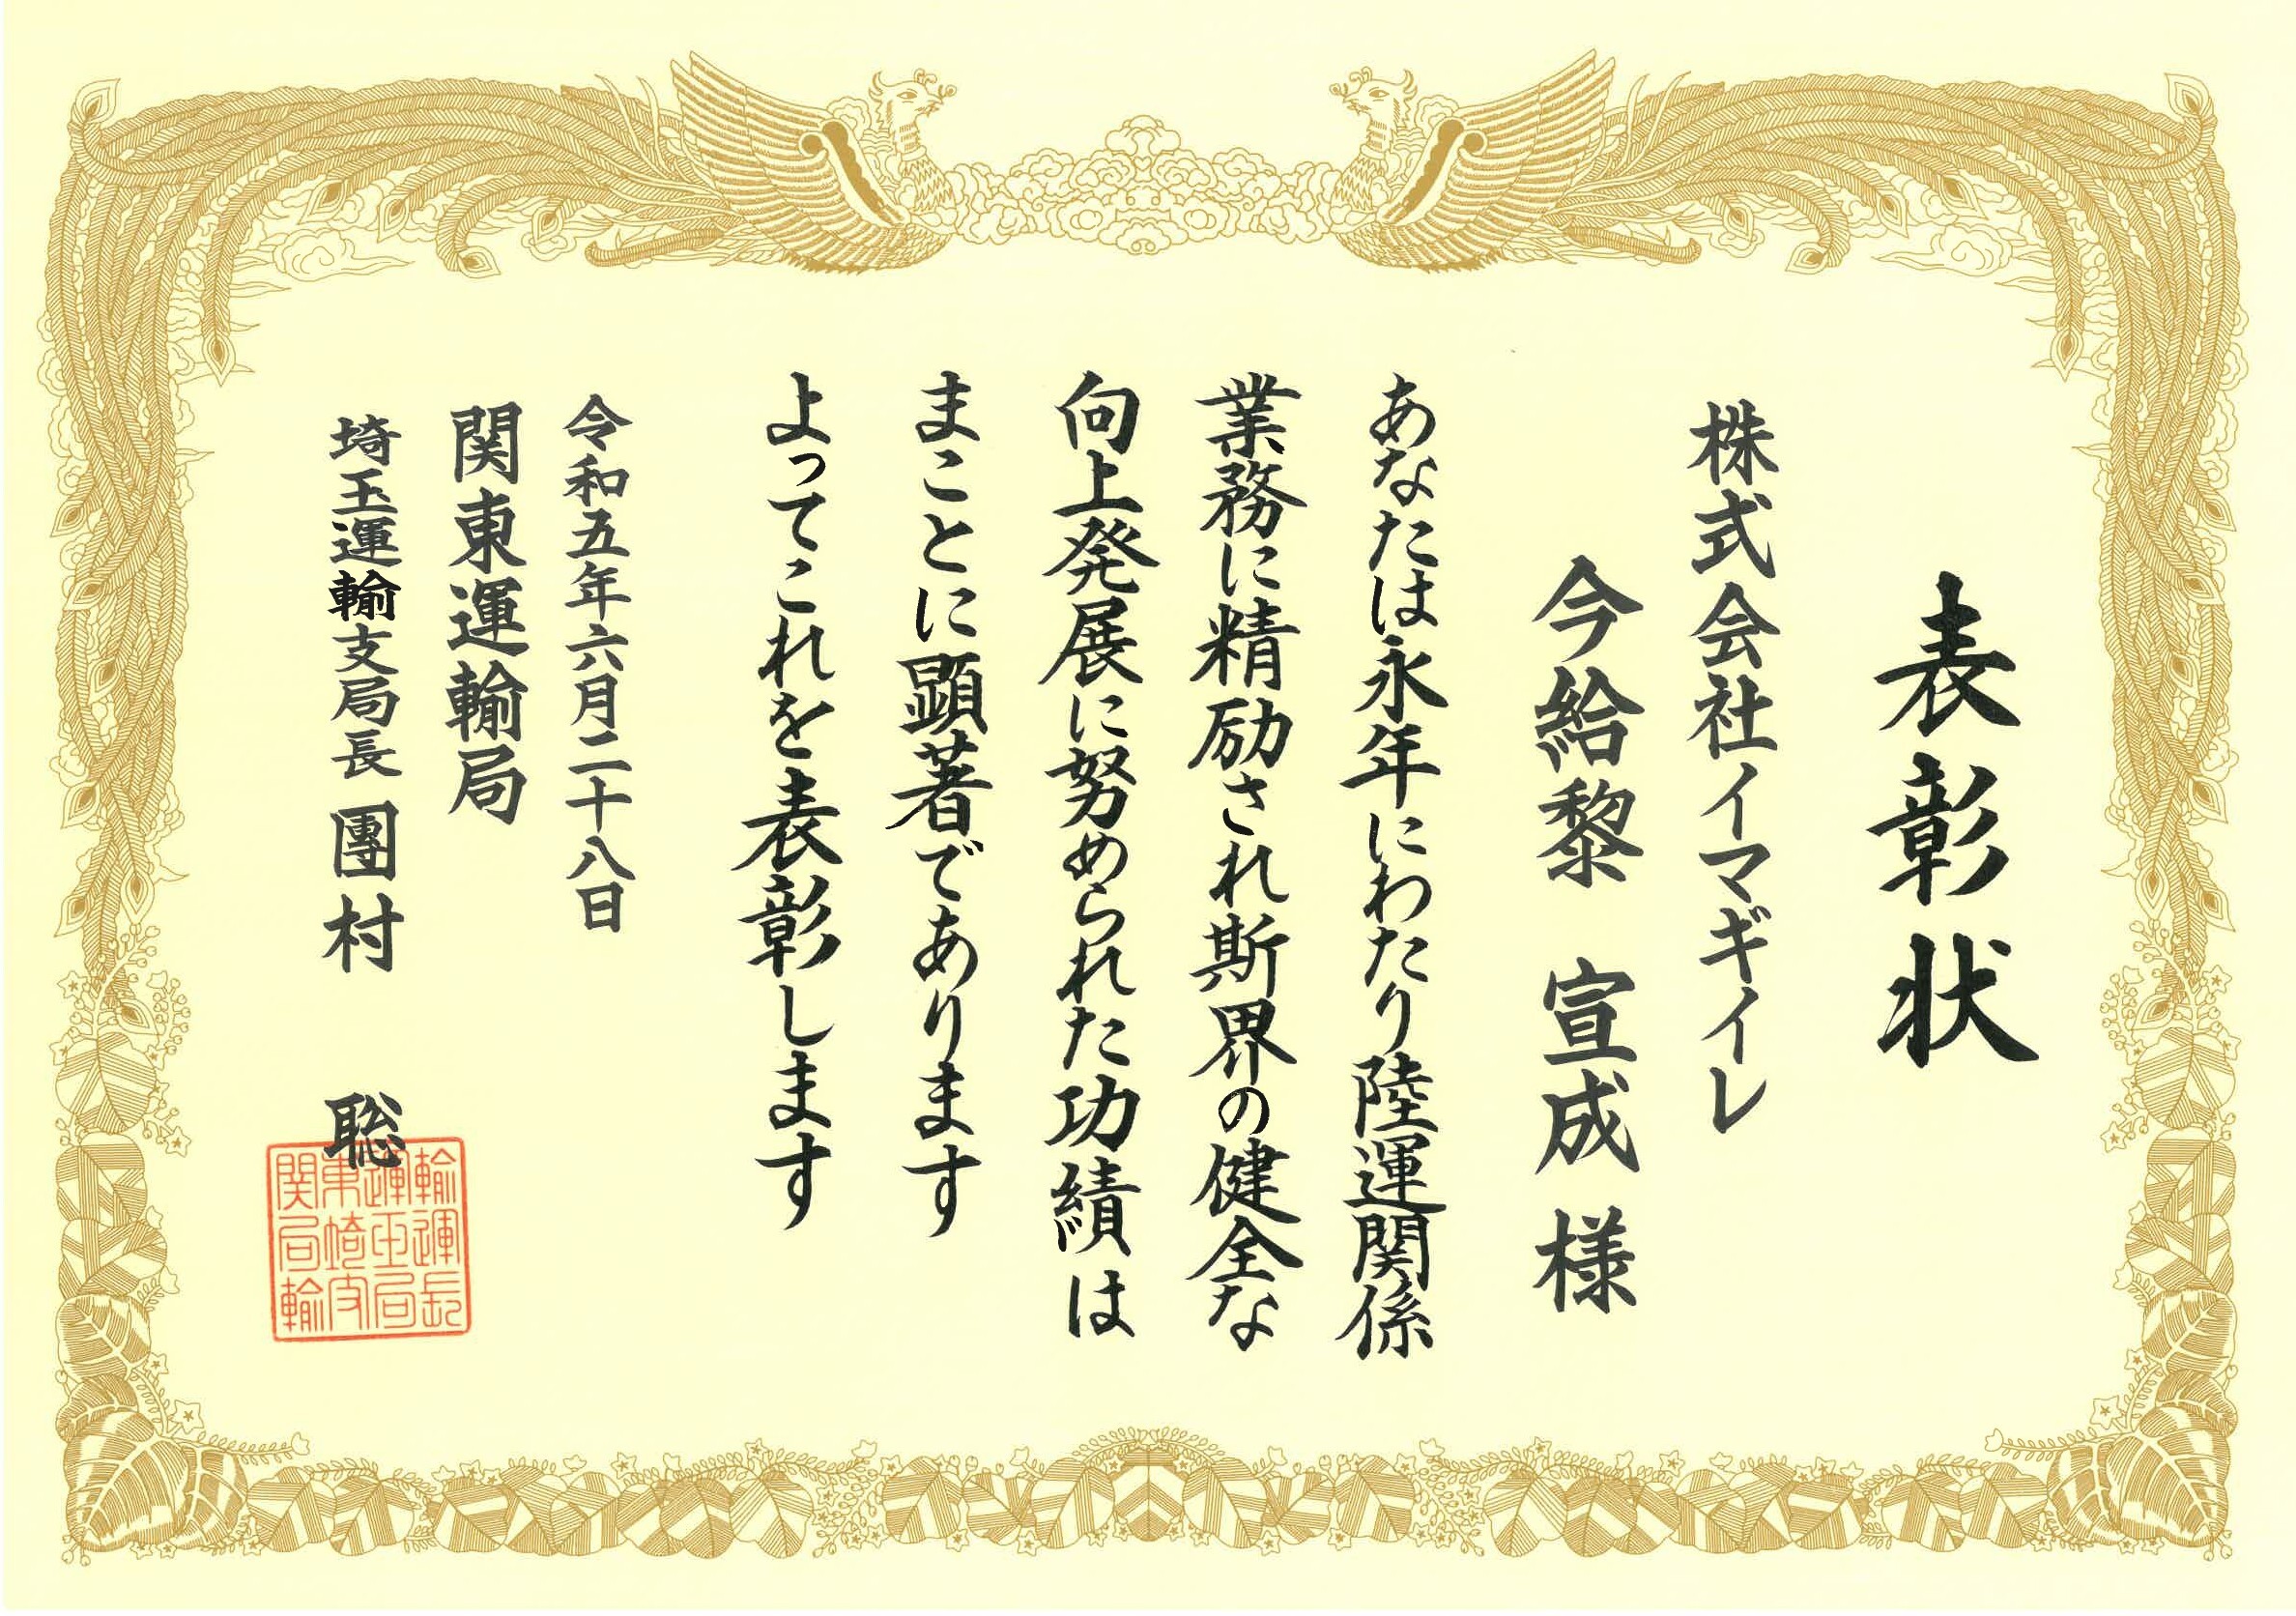 表彰状
株式会社イマギイレ
今給黎 宣成 様
あなたは永年にわたり陸運関係
業務に精励され斯界の健全な
向上発展に努められた功績は
まことに顕著であります
よってこれを表彰します
令和五年六月二十八日
関東運輸局
埼玉運輸支局長 團村 聡